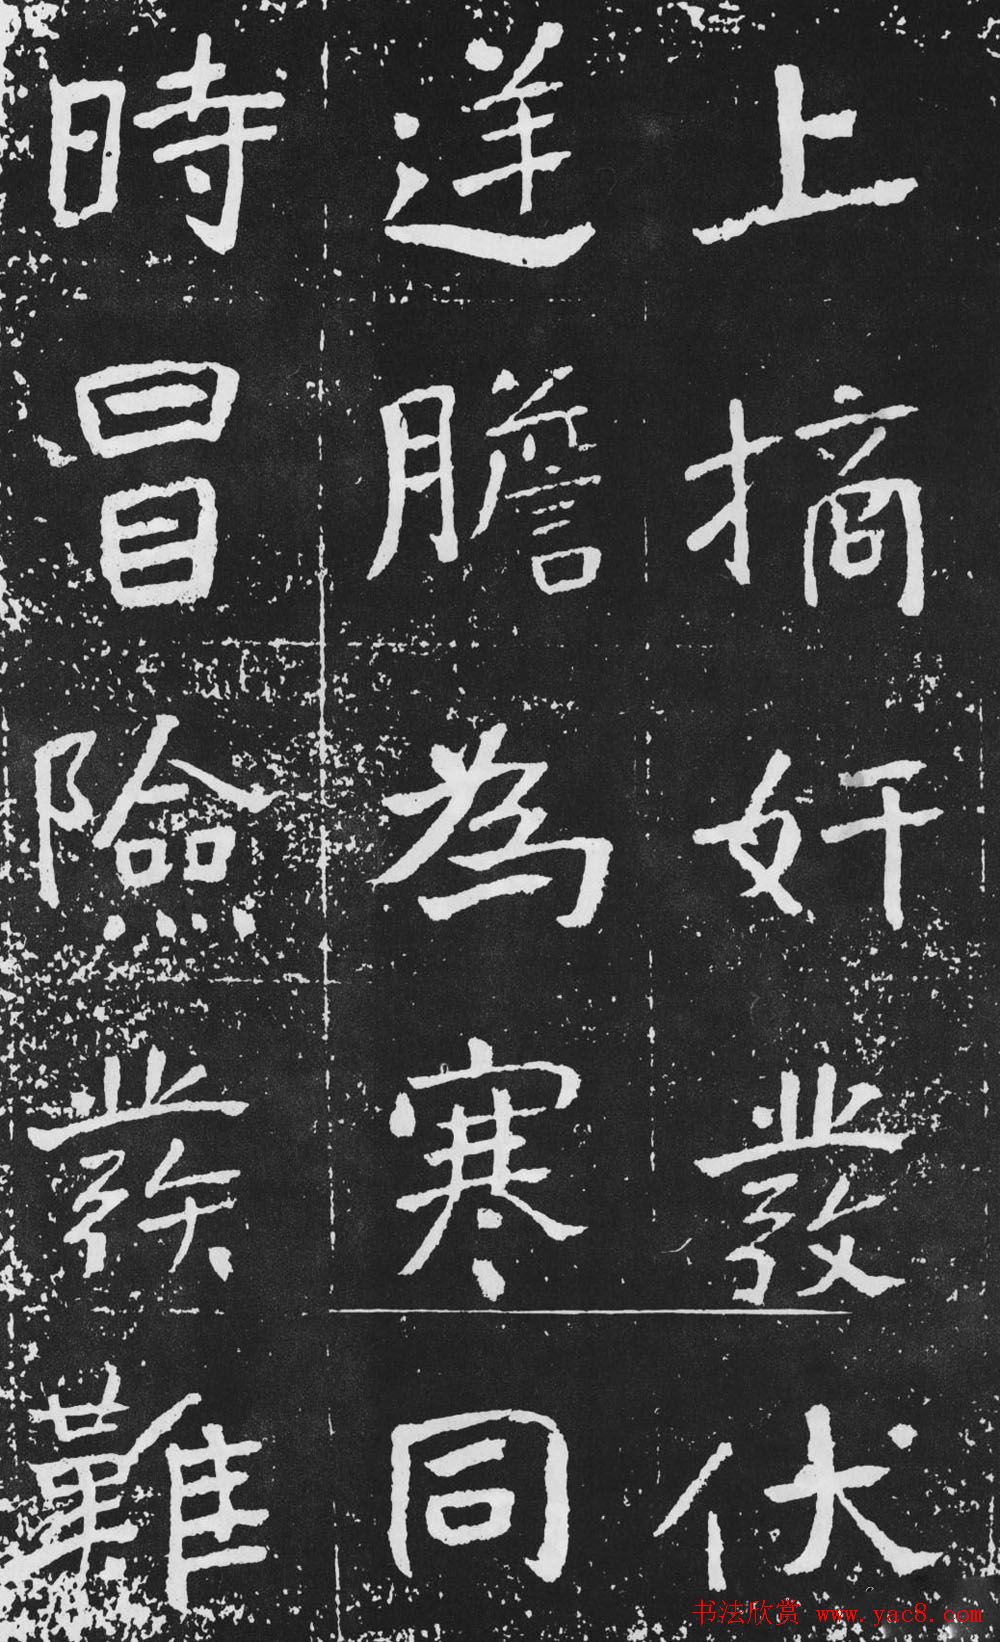 上摘奸發伏
逆膽為寒同
時冒險發難
书法欣赏 www.yac8.com